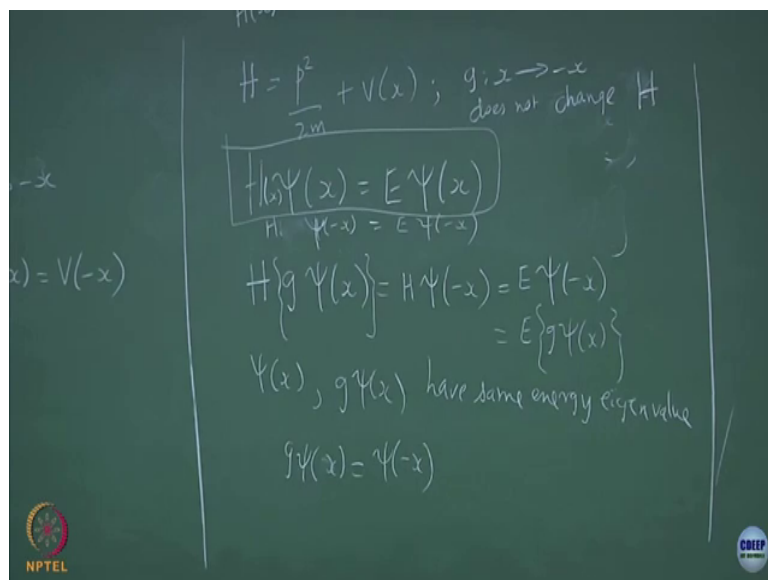 H = p²/2m + V(x) ; g : x → -x
does not change H
-x
H(x) Ψ(x) = E Ψ(x)
H Ψ(-x) = E Ψ(-x)
x) = V(-x)
H{g Ψ(x)} = H Ψ(-x) = E Ψ(-x)
= E{gΨ(x)}
Ψ(x), gΨ(x) have same energy eigenvalue
gΨ(x) = Ψ(-x)
NPTEL
CDEEP